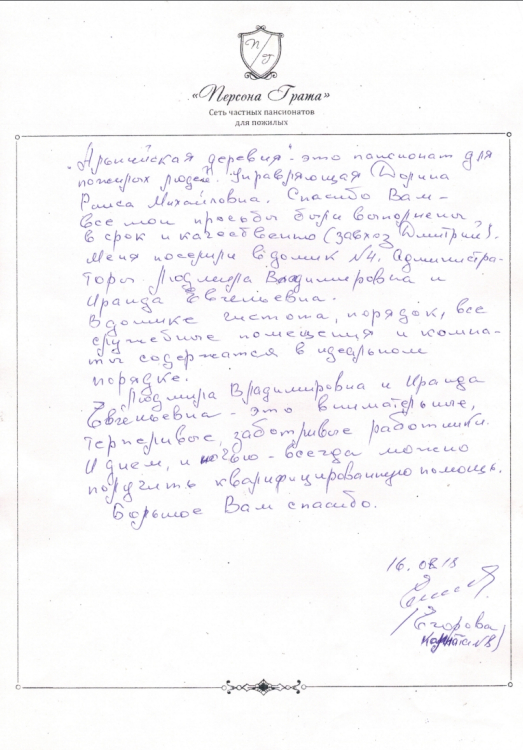 П/Г
«Персона Грата»
Сеть частных пансионатов
для пожилых
„Альпийская деревня" - это пансионат для
пожилых людей. Управляющая Дорина
Раиса Михайловна. Спасибо Вам -
все мои просьбы были выполнены
в срок и качественно (завхоз Дмитрий).
Меня поселили в домик №4. Администра-
торы Людмила Владимировна и
Ираида Евгеньевна.
В домике чистота, порядок, все
служебные помещения и комна-
ты содержатся в идеальном
порядке.
Людмила Владимировна и Ираида
Евгеньевна - это внимательные,
терпеливые, заботливые работники.
И днем, и ночью - всегда можно
получить квалифицированную помощь.
Большое Вам спасибо.
16.08.18
/Егорова
комната №8)